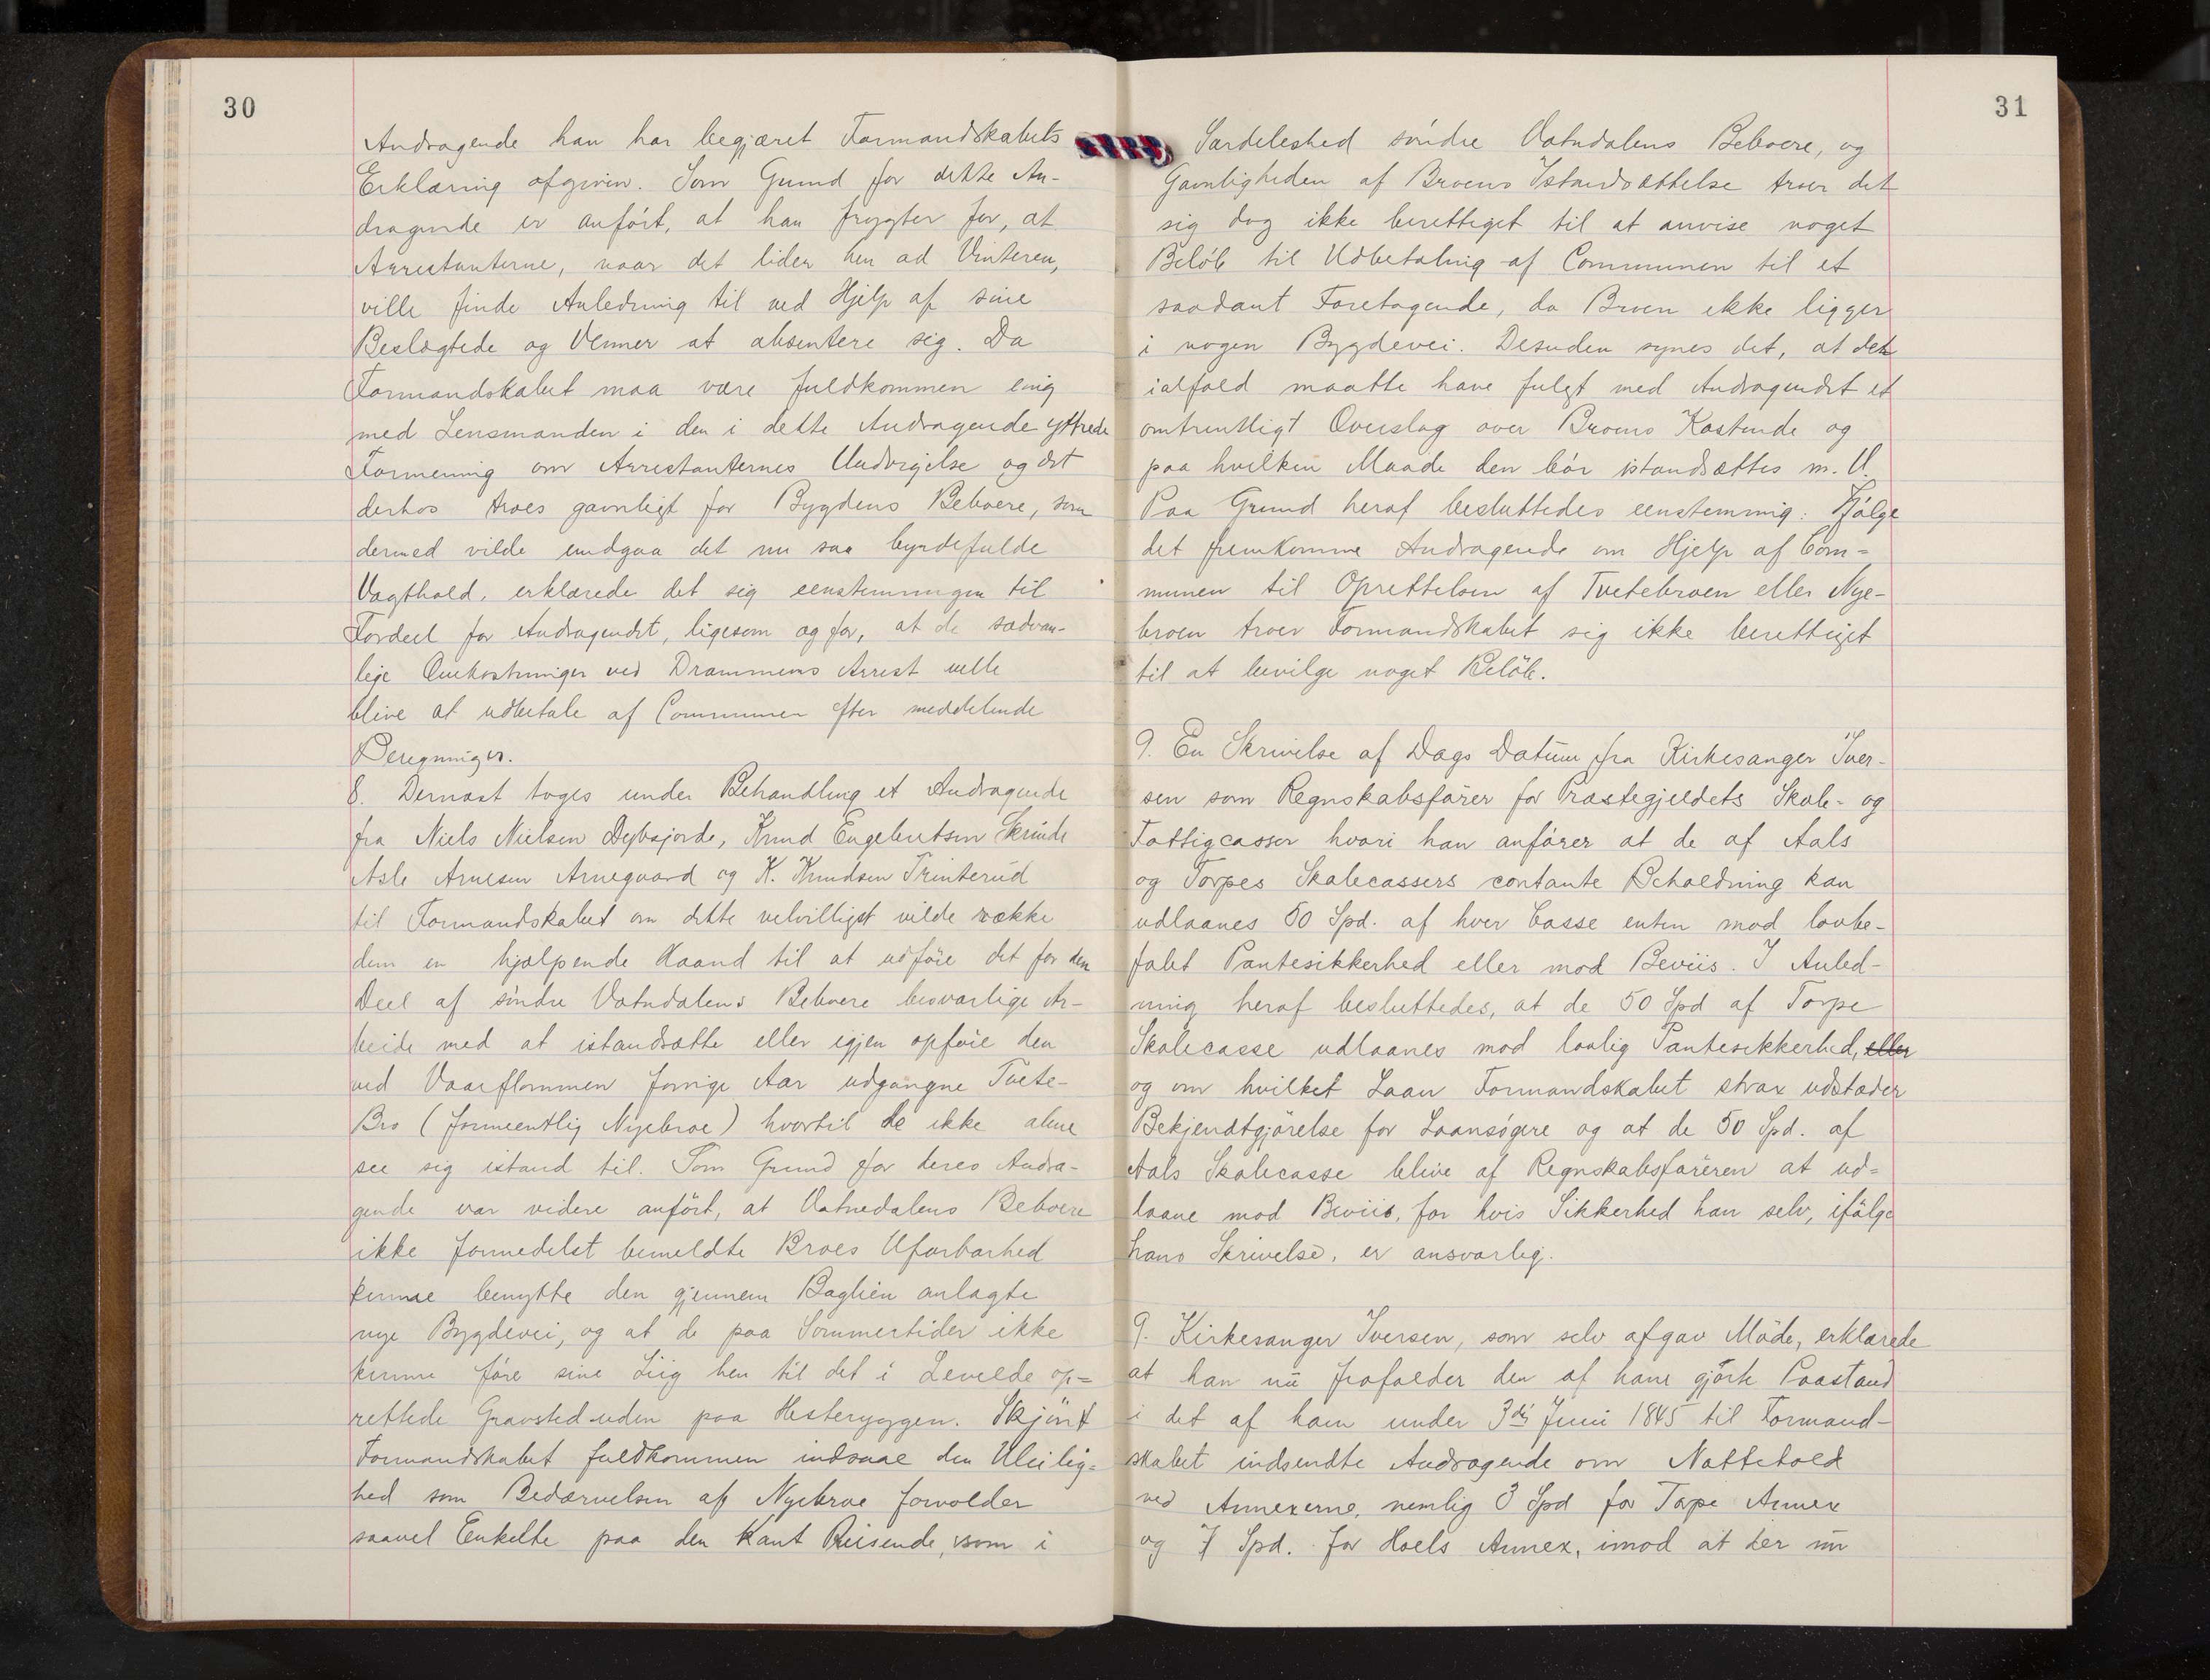 30
Andragende han har begjæret Formandskabets
Erklæring afgiven. Som Grund for dette An-
dragende er anført, at han frygter for, at
Arrestanterne, naar det lider hen ad Vinteren,
ville finde Anledning til ved Hjelp af sine
Beslægtede og Venner at absentere sig. Da
Formandskabet maa være fuldkommen enig
med Lensmanden i den i dette Andragende yttrede
Formening om Arrestanternes Undvigelse og det
derhos troes gavnligt for Bygdens Beboere, som
dermed vilde undgaa det nu saa byrdefulde
Vagthold, erklærede det sig eenstemmigen til
Fordeel for Andragendet, ligesom og for, at de sædvan-
lige Omkostninger ved Drammens Arrest ville
blive at udbetale af Communen efter meddelende
Beregninger.
8. Dernæst toges under Behandling et Andragende
fra Niels Nielsen Dybsjorde, Knud Engebretsen Skrinde
Asle Arnesen Arnegaard og K. Knudsen Trinterud
til Formandskabet om dette velvilligst vilde række
dem en hjælpende Haand til at udføre det for den
Deel af søndre Vatndalens Beboere besværlige Ar-
beide med at istandsætte eller igjen opføie den
ved Vaarflommen forrige Aar udgangne Tvete-
Bro (formeentlig Nyebroe) hvortil de ikke alene
see sig istand til. Som Grund for deres Andra-
gende var videre anført, at Vatnedalens Beboere
ikke formedelst bemeldte Broes Ufarbarhed
kunne benytte den gjennem Baglien anlagte
nye Bygdevei, og at de paa Sommertider ikke
kunne føre sine Liig hen til det i Leveldeop=
rettede Gravsted uden paa Hesteryggen. Skjønt
Formandskabet fuldkommen indsaae den Uleilig=
hed som Bedærvelsen af Nyebroe forvolder
saavel Enkelte paa den Kant Reisende, som i
31
Særdeleshed søndre Vatndalens Beboere, og
Gavnligheden af Broens Istandsættelse troer det
sig dog ikke berettiget til at anvise noget
Beløb til Udbetaling af Communen til et
saadant Foretagende, da Broen ikke ligger
i nogen Bygdevei. Desuden synes det, at det
ialfald maatte have fulgt med Andragendet et
omtrentligt Overslag over Broens Kostende og
paa hvilken Maade den bør istandsættes m. V.
Paa Grund heraf besluttedes eenstemmig: Ifølge
det fremkomne Andragende om Hjelp af Com=
munen til Oprettelsen af Tvetebroen eller Nye-
broen troer Formandskabet sig ikke berettiget
til at bevilge noget Beløb.
9. En Skrivelse af Dags Datum fra Kirkesanger Iver-
sen som Regnskabsfører for Præstegjeldets Skole- og
Fattigcasser hvori han anfører at de af Aals
og Torpes Skolecassers contante Beholdning kan
udlaanes 50 Spd. af hver Casse enten mod lovbe-
falet Pantesikkerhed eller mod Beviis. I Anled-
ning heraf besluttedes, at de 50 Spd af Torpe
Skolecasse udlaanes mod lovlig Pantesikkerhed, eller
og om hvilket Laan Formandskabet strax udstæder
Bekjendtgjørelse for Laansøgere og at de 50 Spd. af
Aals Skolecasse blive af Regnskabsføreren at ud=
laane mod Beviis, for hvis Sikkerhed han selv, ifølge
hans Skrivelse, er ansvarlig.
9. Kirkesanger Iversen, som selv afgav Møde, erklærede
at han nu frafalder den af hane gjörte Paastand
i det af ham under 3die Juni 1845 til Formand-
skabet indsendte Andragende om Nattehold
ved Annexerne, nemlig 3 Spd for Torpe Annex
og 7 Spd. for Hoels Annex, imod at der nu